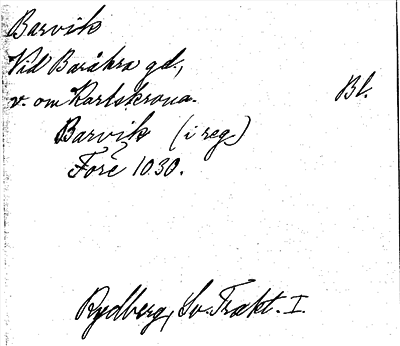 Barvik
Vid Baråkra gd,
v. om Karlskrona. Bl.
Barvik (i reg.)
Före 1030.
Rydberg, Sv. Trakt. I.